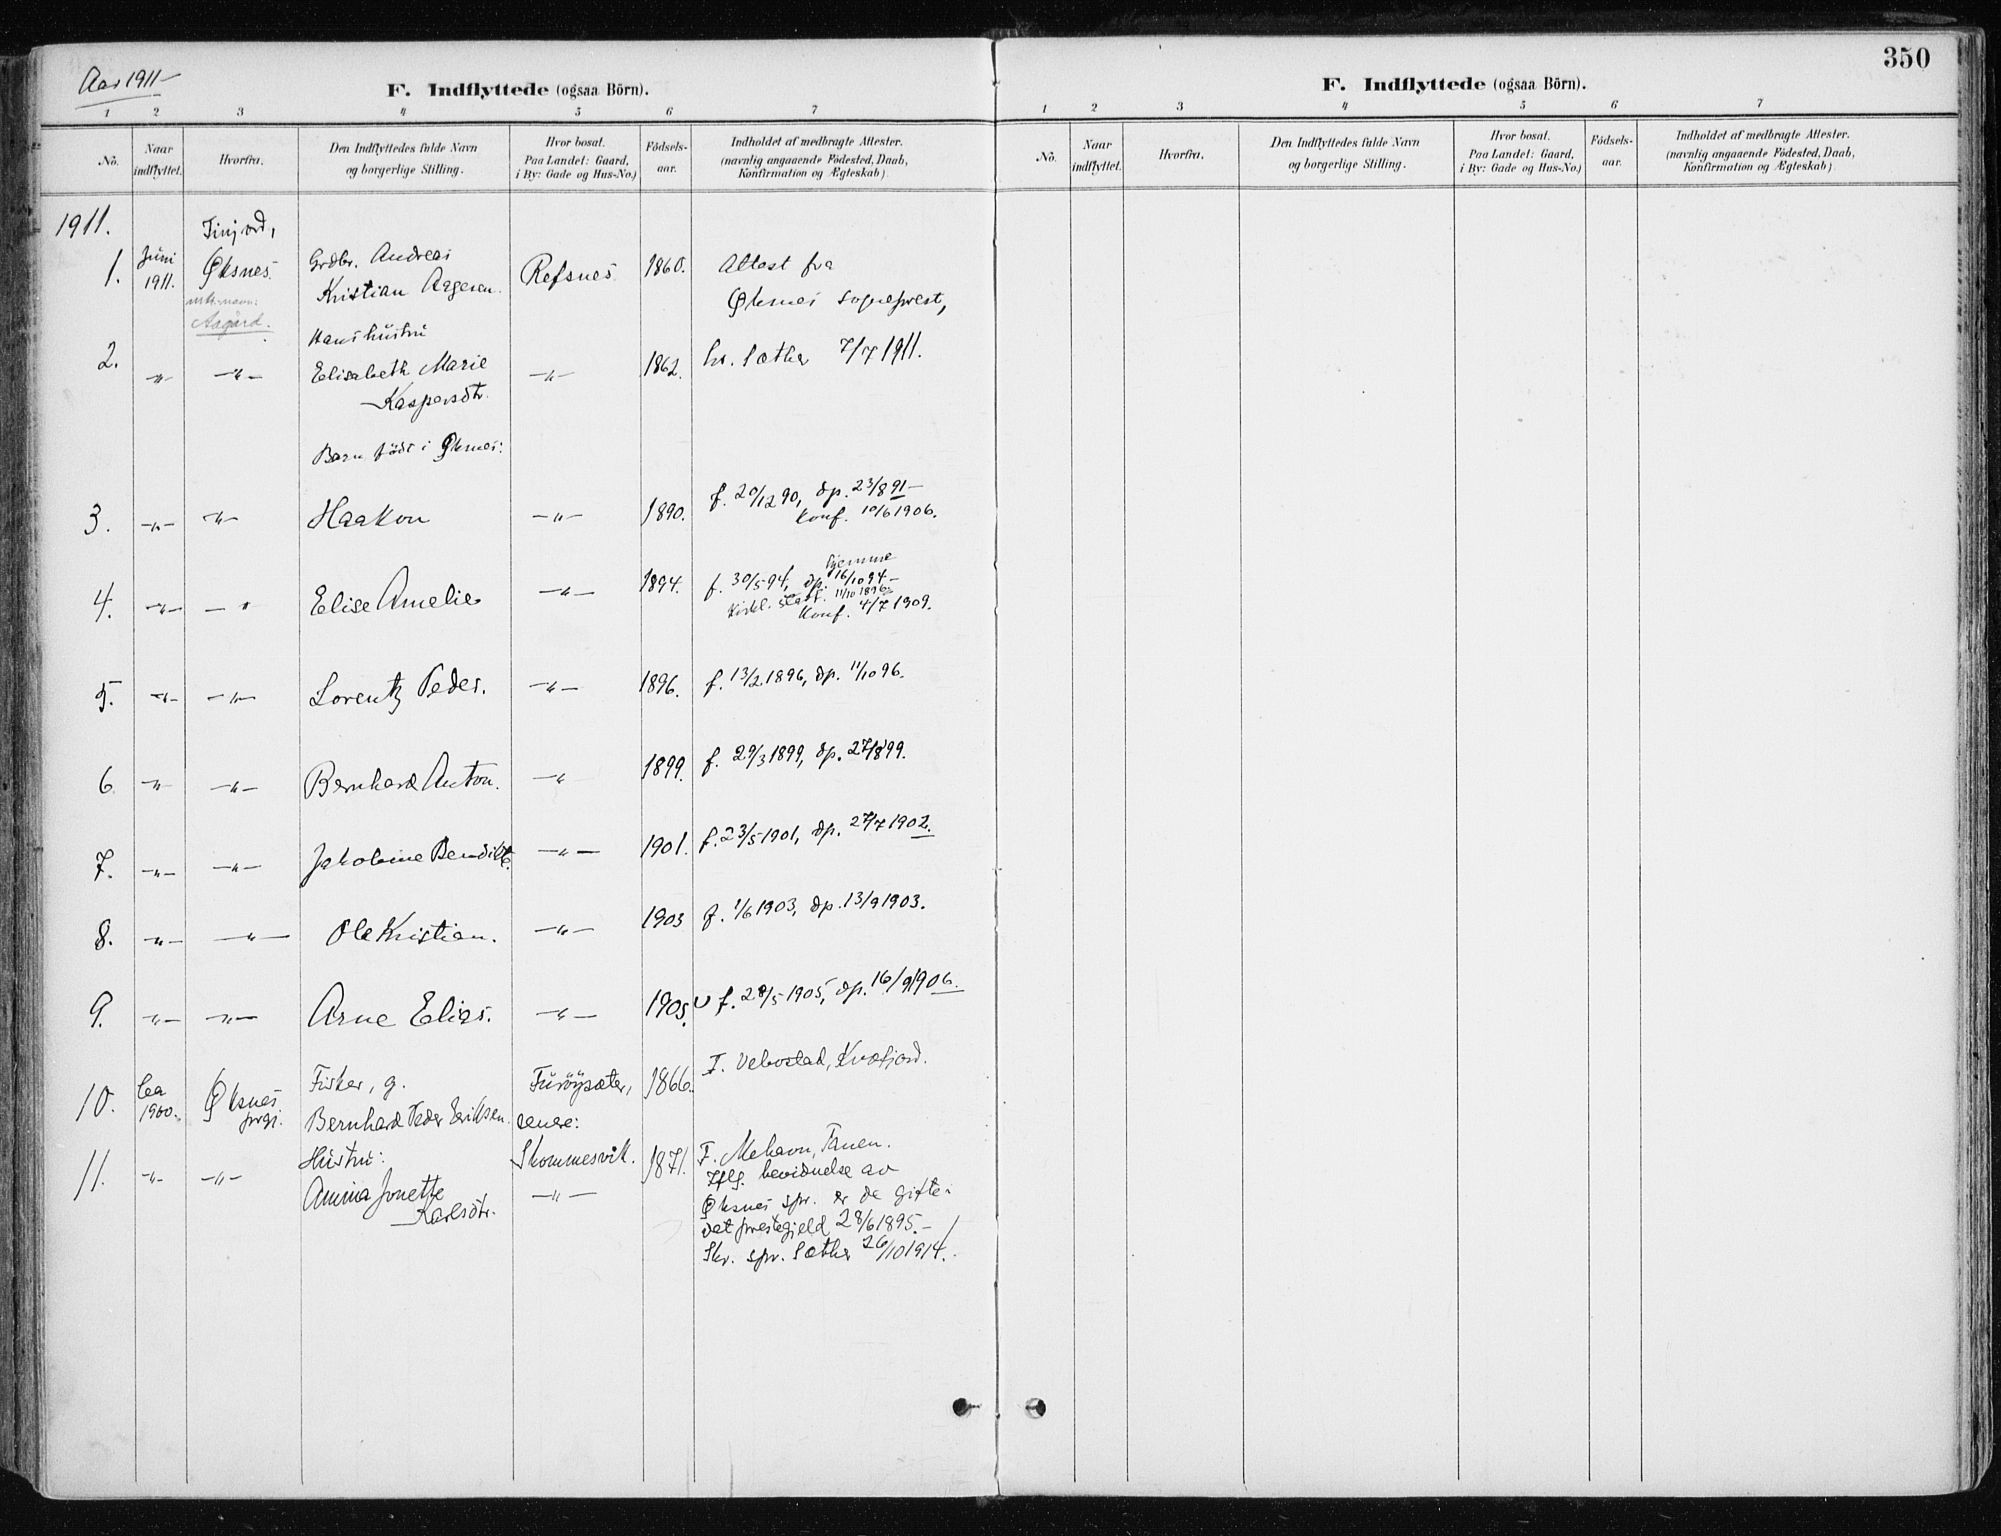 350
Aar 1911
F. Indflyttede (ogsaa Börn).
1 2 3 4 5 6 7
No. Naar indflyttet. Hvorfra. Den Indflyttedes fulde Navn og borgerlige Stilling. Hvor bosat. Paa Landet: Gaard, i By: Gade og Hus-No.) Födsels-aar. Indholdet af medbragte Attester. (navnlig angaaende Födested, Daab, Konfirmation og Ægteskab).
1911.
1. Juni 1911. Øksnes. Grdbr. Andreas Refsnes 1860. Attest fra
Kristian Aagesen. Øksnes sogneprest,
Aagård.
Hans hustru
2. -"- -"- Elisabeth Marie -"- 1862. hr. Sæther 7/7 1911.
Kaspersdtr.
Barn födt i Øksnes:
3. -"- -"- Haakon -"- 1890. f. 20/12 90, dp. 23/8 91 -
Konf. 10/6 1906.
4. -"- -"- Elise Amelie -"- 1894. f. 30/5 94, dp. hjemme 16/10 94 -
Kirkl. stadf. 11/10 1896
Konf. 4/7 1909.
5. -"- -"- Lorentz Peder. -"- 1896. f. 13/2 1896, dp. 11/10 96.
6 -"- -"- Bernhard Anton. -"- 1899. f. 29/3 1899, dp. 27/8 99.
7. -"- -"- Jakobine Bendikte. -"- 1901. f. 23/5 1901, dp. 27/7 1902.
8. -"- -"- Ole Kristian. -"- 1903 f. 1/6 1903, dp. 13/9 1903.
9. -"- -"- Arne Elias. -"- 1905. f. 28/5 1905, dp. 16/9 1906.
10. Ca 1900. Øksnes prgj. Fisker, g. Furøysæter, 1866. F. Vebostad, Kvæfjord.
Bernhard Peder Eriksen. senere:
11. -"- -"- Hustru: Skommesvik. 1871. F. Mehavn, Tanen.
Amina Jonette -"- Iflg. bevidnelse av
Karlsdtr. Øksnes spr. er de gifte i
det prestegjeld 28/6 1895. -
Skr. spr. Sæther 26/10 1914.
F. Indflyttede (ogsaa Börn).
1 2 3 4 5 6 7
No. Naar indflyttet. Hvorfra. Den Indflyttedes fulde Navn og borgerlige Stilling. Hvor bosat. Paa Landet: Gaard, i By: Gade og Hus-No.) Födsels-aar. Indholdet af medbragte Attester. (navnlig angaaende Födested, Daab, Konfirmation og Ægteskab).